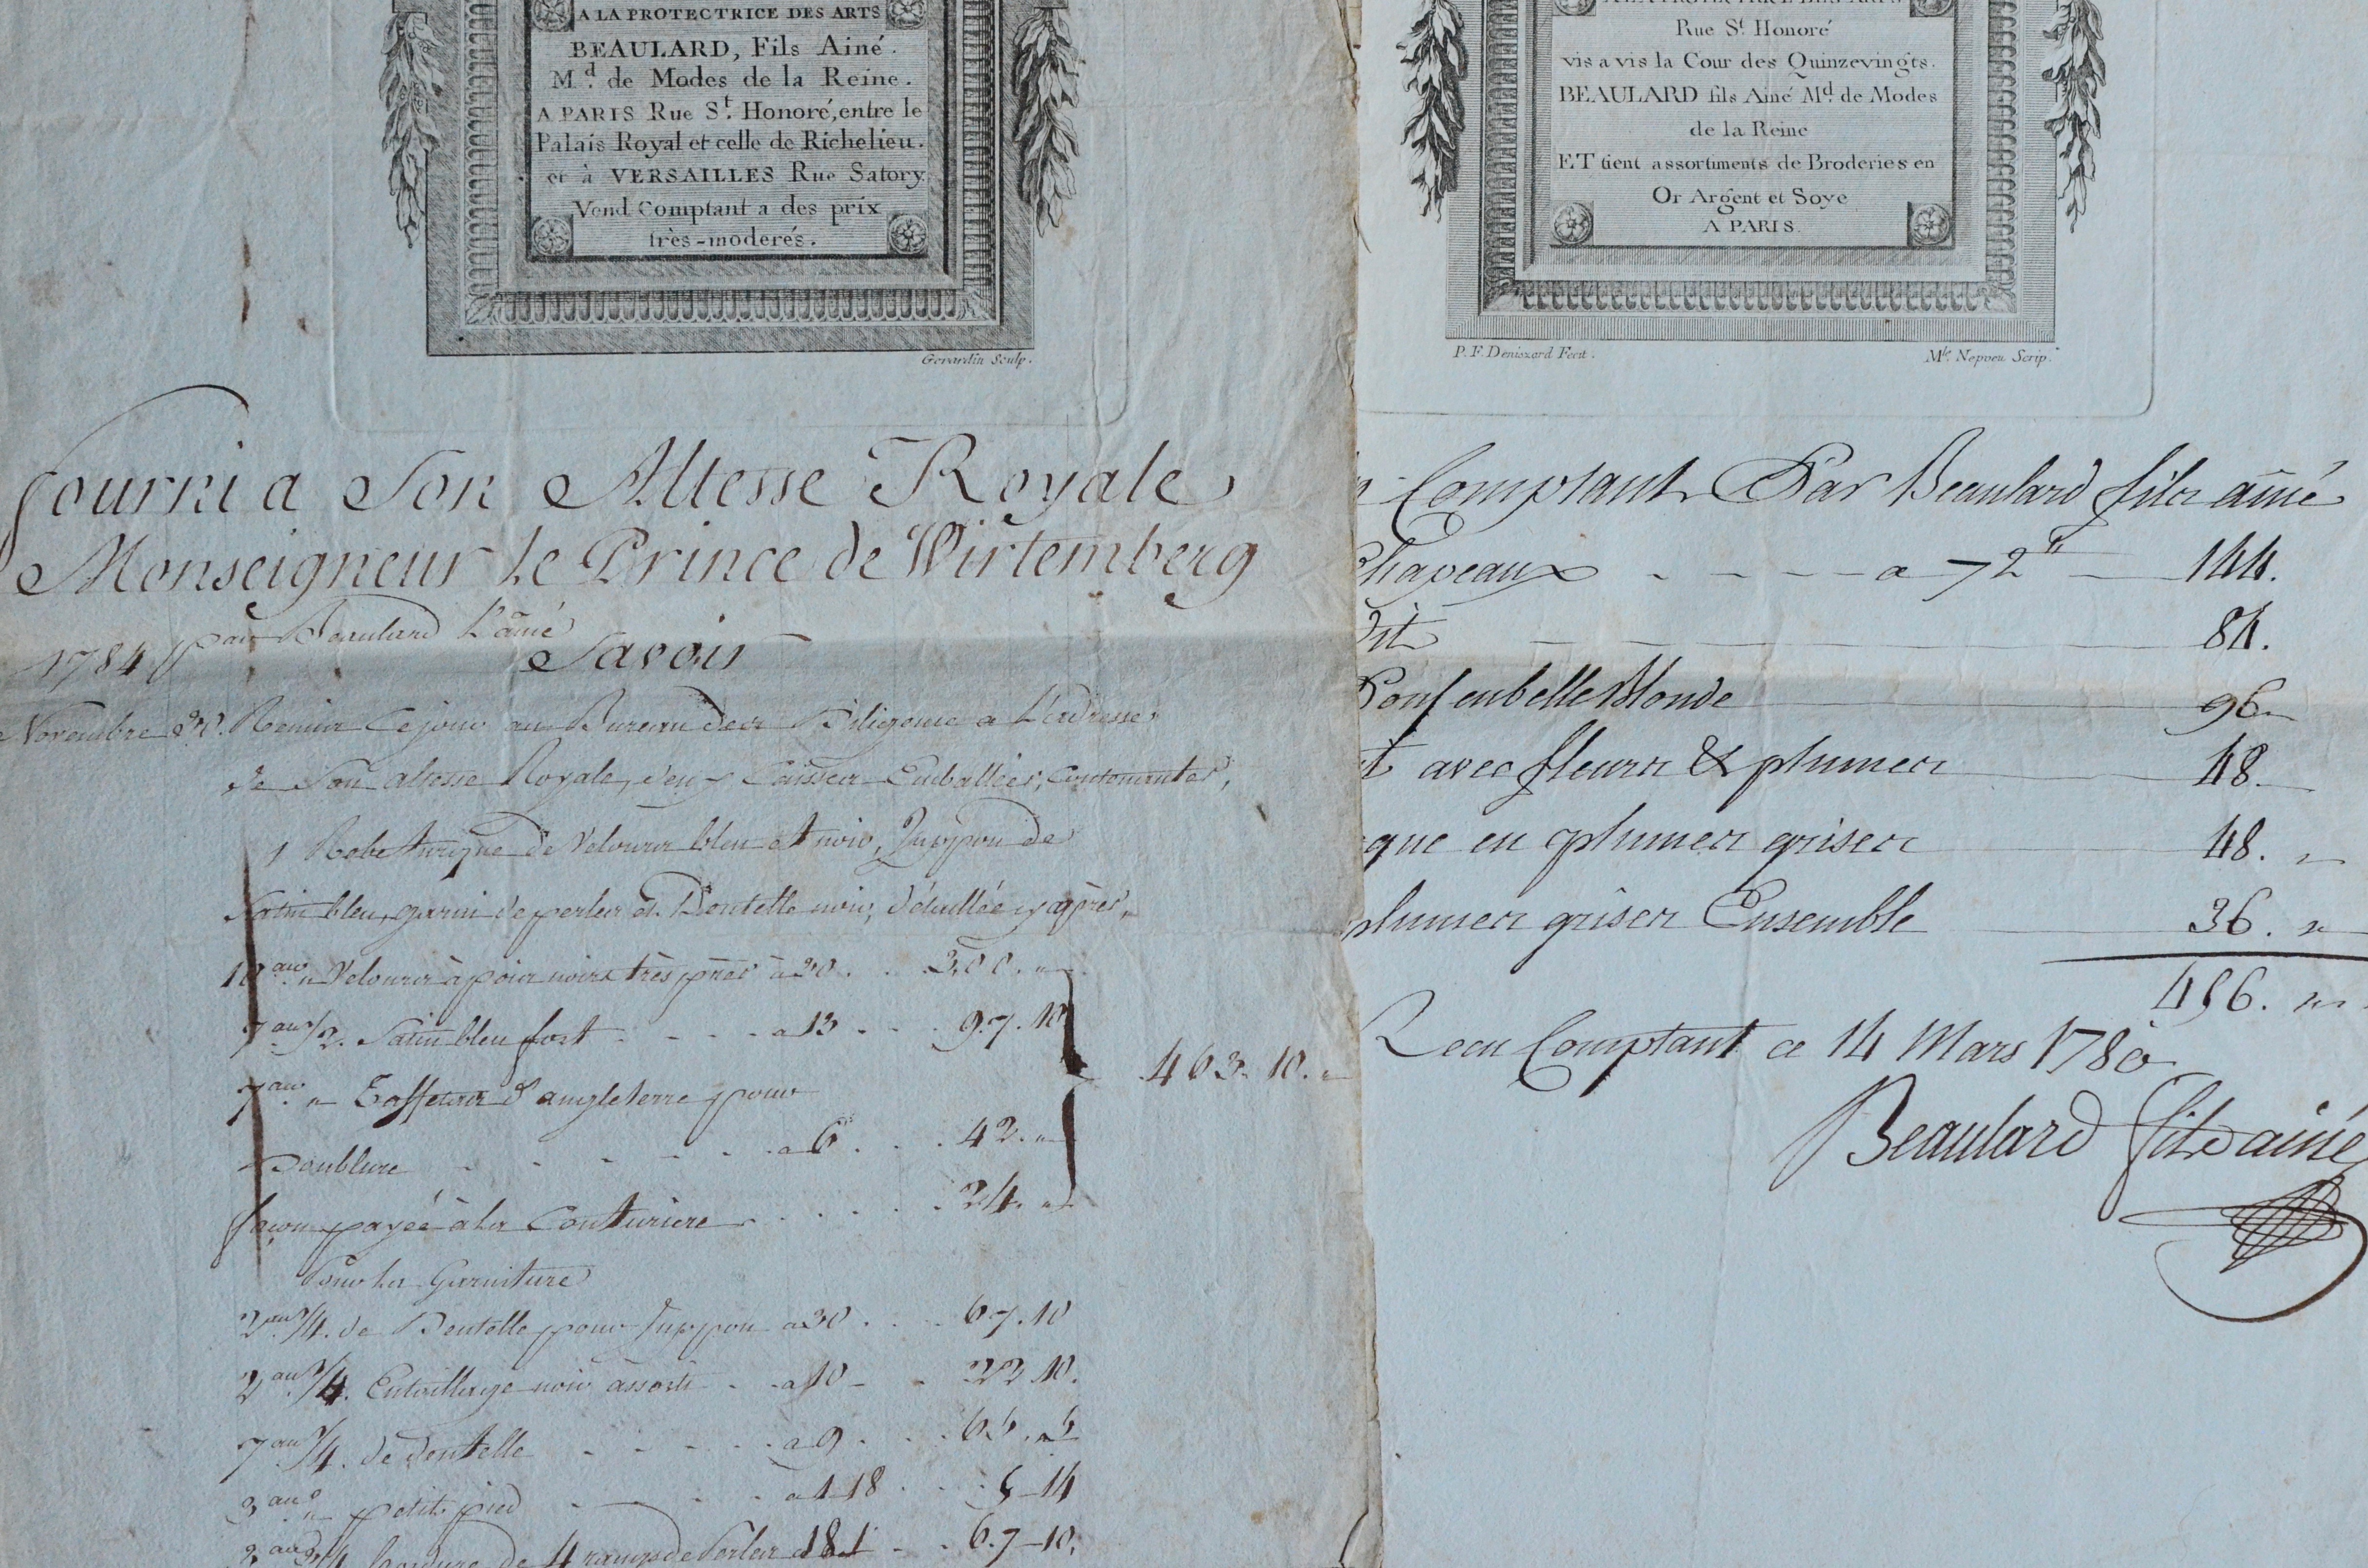 A LA PROTECTRICE DES ARTS
BEAULARD, Fils Ainé.
M.d de Modes de la Reine.
A PARIS Rue S.t Honoré, entre le
Palais Royal et celle de Richelieu.
et à VERSAILLES Rue Satory
Vend Comptant a des prix
très-moderés.
Gerardin Sculp.
fourni a Son Altesse Royale
Monseigneur le Prince de Wirtemberg
par Beaulard L'ainé
1784
Savoir
Novembre Remis Ce jour au Bureau des Diligence a L'adresse
de Son altesse Royale, deux Caisses Emballées, Contenantes,
1 Robe turque de Velours bleu et noir, Juppon de
Satin bleu, garni de perles et Dentelle noir, détaillée cy après,
10 au. " Velours à poix noirs très près à 30 . . 300. "
7 au. 1/2. Satin bleu fort - - - a 13 - - 97. 10
7 au. " Taffetas d'angleterre pour
Doublure - - - - - a 6 . . 42. "
463. 10. "
façon payée à la Couturiere - - - - 24. "
Pour la Garniture
2 au. 1/4. de Dentelle pour Juppon a 30 . . 67. 10
2 au. 1/4. Entoillage noir assorti - - a 10 - - 22 10.
7 au. 1/4. de dentelle - - - - - a 9 . . 65. 5
3 au. " petit pied - - - - a 1 18 . . 5-14
bordure de 4 rangs de Perles a 18 - - 67-10.
A LA PROTECTRICE DES ARTS
Rue S.t Honoré
vis a vis la Cour des Quinzevingts.
BEAULARD fils Ainé M.d de Modes
de la Reine
ET tient assortiments de Broderies en
Or Argent et Soye
A PARIS.
P. F. Denisard Fecit.
M.le Nepveu Scrip.
Comptant Par Beaulard fils ainé
Chapeaux - - - - a 72tt 144.
dit 84.
Pouf en belle Blonde 96 "
avec fleurs & plumes 48 "
que en plumes grises 48. "
plumes grises Ensemble 36. "
456. "
Recu Comptant ce 14 Mars 1780
Beaulard fils ainé